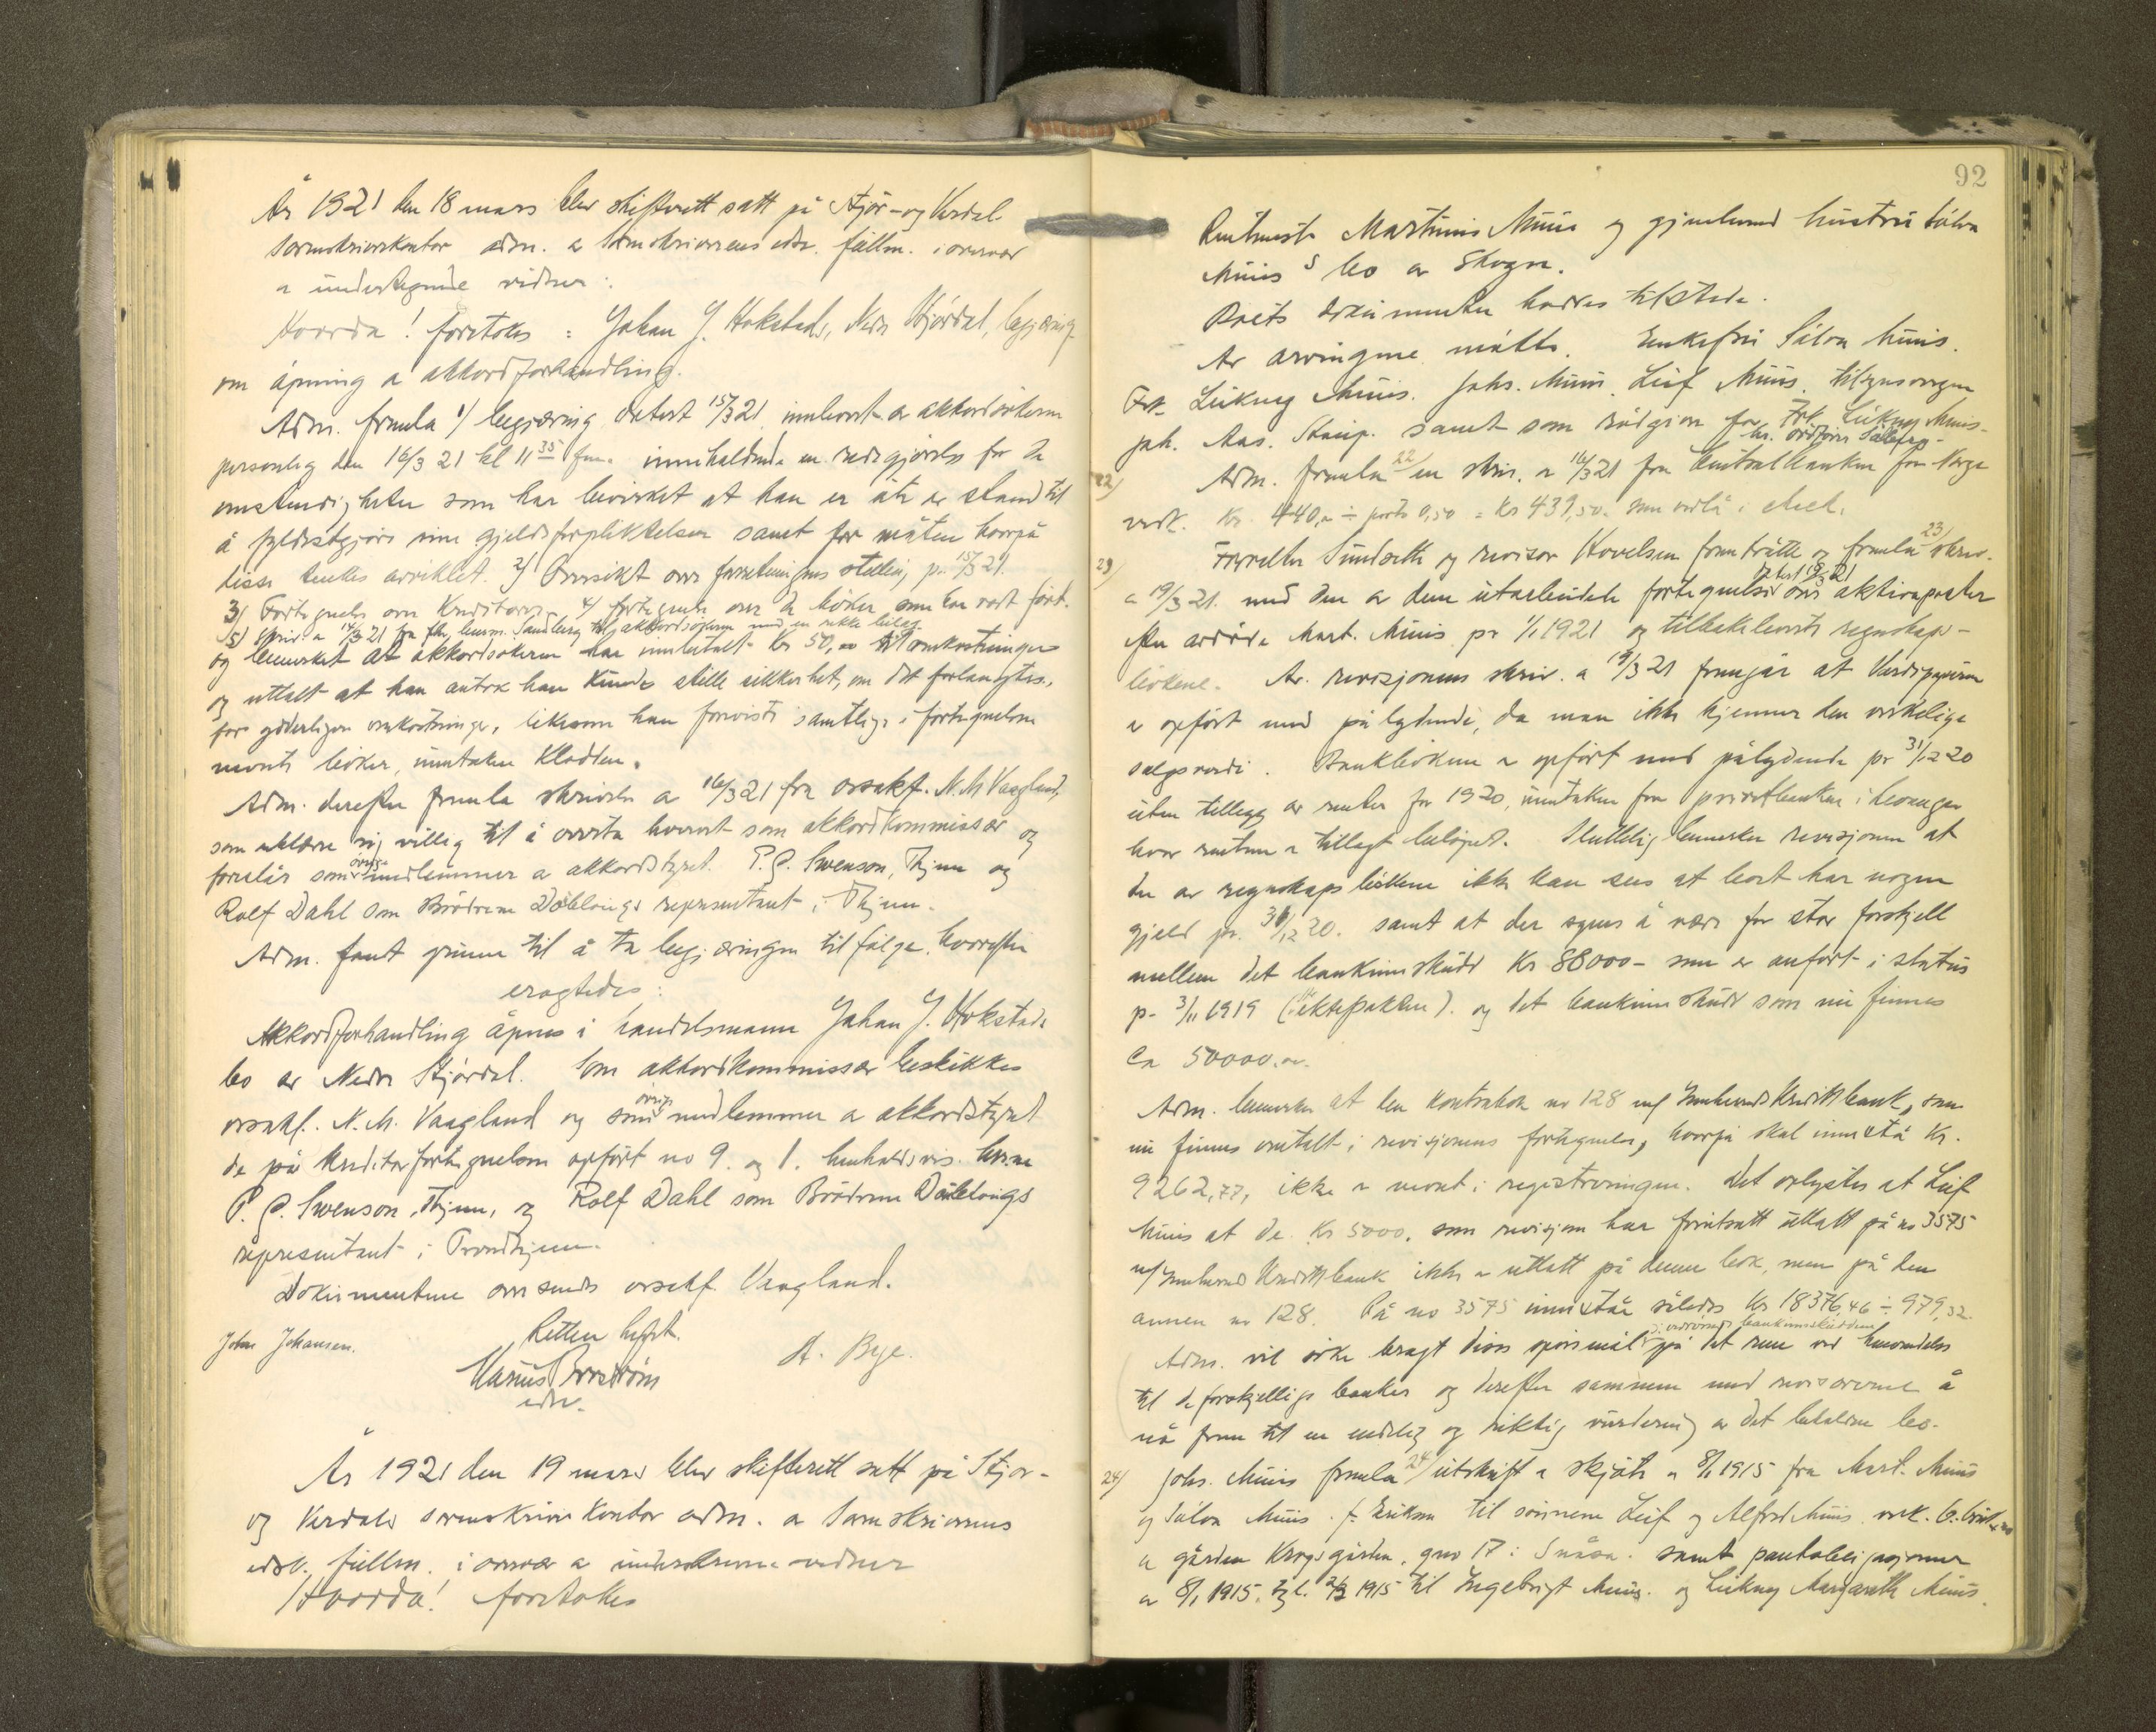 År 1921 den 18 mars blev skifterett satt på Stjør- og Verdal
sorenskriverkontor adm. av sorenskriverens edsv. fullm. i overvær
a undertegnede vidner:
Hvorda! foretokes: Johan J. Hokstads, Nedre Stjørdal, begjæring
om åpning a akkordforhandling.
Adm. fremla 1/ begjæring datert 15/3 21 innlevert av akkordsøkeren
personlig den 16/3 21 kl 11 35 fm. inneholdende en redegjørelse for de
omstendigheter som har bevirket at han er ute av stand til
å fyldestgjøre sine gjeldsforpliktelser samt for måten hvorpå
disse tenkes avviklet. 2/ Oversikt over forretningens stilling pr. 15/3 21.
3/ Fortegnelse over Kreditorer. 4/ fortegnelse over de bøker som har vært ført.
5/ skriv a 14/3 21 fra Sandberg til akkordsøkeren med en rekke bilag.
og bemerket at akkordsøkeren har innbetalt Kr 50,00 til omkostninger
og uttalt at han antok han kunde stille sikkerhet, om det forlangtes,
for yderligere omkostninger, likesom han foreviste samtlige i fortegnelsen
nevnte bøker, unntaken Kladden.
Adm. derefter fremla skrivelse a 16/3 21 fra orsakf. N. M. Vaagland,
som erklærer sig villig til å overta hvervet som akkordkommissær og
foreslår som øvrige medlemmer a akkordstyret. P. C. Swenson, Thjem og
Rolf Dahl som Brødrene Døblougs representant i Thjem.
Adm. fant grunn til å ta begjæringen til følge, hvorefter
eragtedes:
Akkordforhandling åpnes i handelsmann Johan J. Hokstads
bo av Nedre Stjørdal. Som akkordkommissær beskikkes
orsakf. N. M. Vaagland og som øvrige medlemmer a akkordstyret
de på kreditorfortegnelsen opført no 9. og 1. henholdsvis herrene
P. C. Swenson, Thjem, og Rolf Dahl som Brødrene Døblougs
representant i Trondhjem.
Dokumentene oversendes orsakf. Vaagland.
Retten hevet.
John Johansen. A. Bye.
Marius Brostrøm
edsv.
År 1921 den 19 mars blev skifterett satt på Stjør-
og Verdals sorenskriverkontor adm. a sorenskriverens
edsv. fullm. i overvær a underskrevne vidner
Hvorda! foretokes
92
Rentmester Martinus Muus og gjenlevende hustru Sølva
Muus's bo av Skogn.
Boets dokumenter haddes tilstede.
Av arvingene møtte. Enkefru Sølva Muus.
Frk. Lickny Muus. Johs. Muus. Leif Muus. tilsynsvergen
Joh. Aas. Staup. samt som rådgiver for Frk. Lickny Muus
hr. ordfører
22/ Adm. fremla 22/ en skriv. a 16/3 21 fra Centralbanken for Norge
vedk. Kr. 440,- ÷ porto 0,50 = Kr 439,50. som vedlå i chek.
23/ Forvalter Sundseth og revisor Hovelsen fremtrådte og fremla 23/ skriv.
a 19/3 21. med den av dem utarbeidede fortegnelse datert 19/3 21 over aktivaposter
efter avdøde Mart. Muus pr 1/1 1921 og tilbakeleverte regnskaps-
bøkene. Av revisjonens skriv. a 19/3 21 fremgår at Verdipapirene
er opført med pålydende, da man ikke kjenner den virkelige
salgsverdi. Bankbøkene er opført med pålydende pr 31/12 20
uten tillegg av renter for 1920, unntaken for privatbanken i Levanger
hvor renten er tillagt beløpet. Sluttelig bemerker revisjonen at
der av regnskapsbøkene ikke kan sees at boet har nogen
gjeld pr. 31/12 20. samt at der synes å være for stor forskjell
mellem det bankinnskudd Kr 88000- som er anført i status
pr. 3/11 1919 (i ektepakten). og det bankinnskudd som nu finnes
Ca 50000.00.
Adm. bemerker at den kontrabok no 128 m/ Innherreds Kreditbank, som
nu finnes omtalt i revisjonens fortegnelse, hvorpå skal innestå Kr.
9262,77, ikke er nevnt i registreringen. Det oplystes at Leif
Muus at de Kr 5000. som revisjonen har forutsatt uttatt på no 3575
m/ Innherreds Kreditbank ikke er uttatt på denne bok, men på den
annen no 128. På no 3575 innestår således Kr 18376,46 ÷ 979,32.
Adm. vil søke bragt disse spørsmål vedrørende bankinnskuddene på det rene ved henvendelse
til de forskjellige banker og derefter sammen med revisorerne å
nå frem til en endelig og riktig vurdering av det behaldne bo.
24/ Johs. Muus fremla 24/ utskrift a skjøte a 8/1 1915 fra Mart. Muus
og Sølva Muus f. Erikson til sønnene Leif og Alfred Muus vedk.
a gården Krogsgården, gno 17 i Snåsa. samt panteobligasjoner
a 8/1 1915. tgl. 2/3 1915 til Ingebrigt Muus. og Lickny Margarethe Muus.